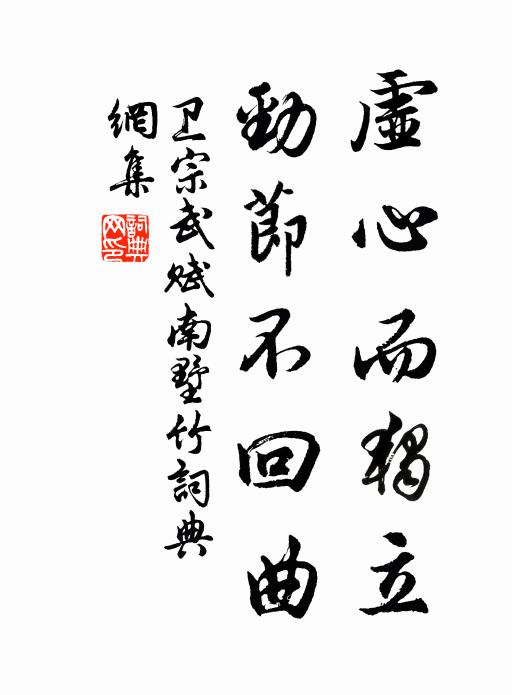 虛心而獨立
勁節不回曲
卫宗武赋南墅竹詞典
網集
詞典
网印